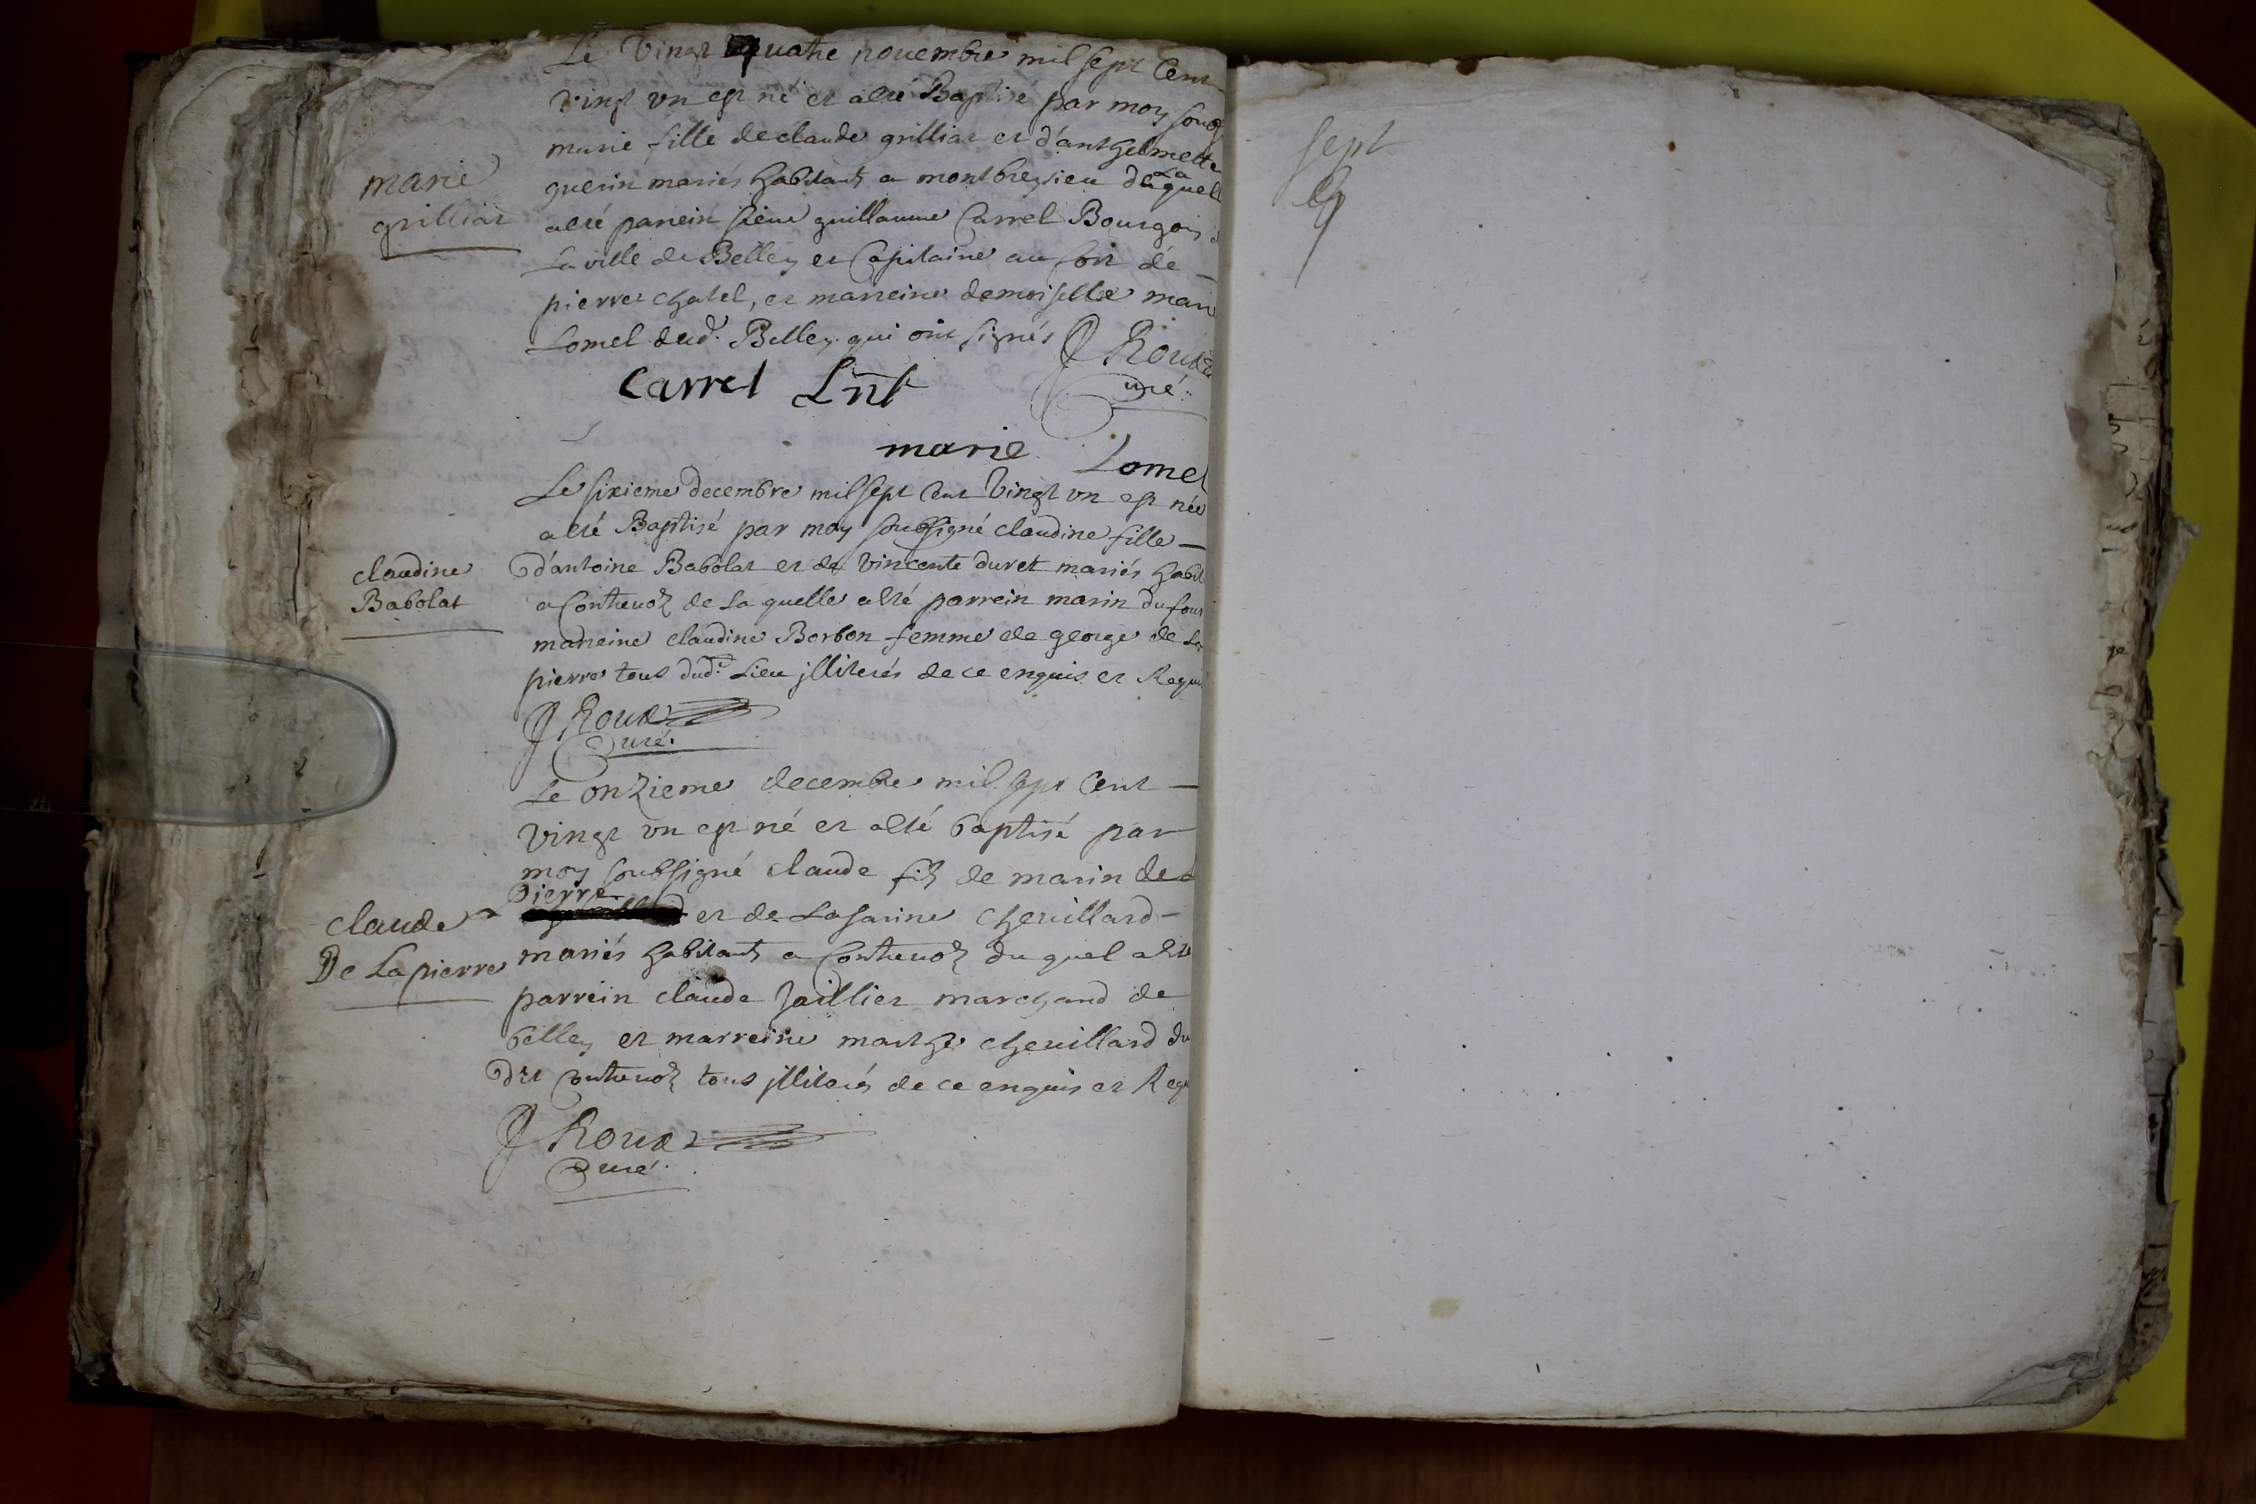 Le vingt quatre novembre mil sept Cent
vingt vn est né et a été Baptisé par moy sous
marie fille de claude grilliat et d'anthelmette
marie
grilliat
guerin mariés habitants a montbreysieu de Laquelle
a été parrein sieur guillaume Carrel Bourgois
La ville de Belley et Capitaine au fort de —
pierre chatel, et marreine demoiselle marie
Lomel dud. Belley qui ont signés J Roux
Curé
Carrel Lnt
marie Lomel
Le sixieme decembre mil sept Cent vingt vn est née
a été Baptisé par moy soubsigné claudine fille —
claudine
Babolat
d'antoine Babolat et de vincente duret mariés habit
a Contrevoz de La quelle a été parrein marin dufour
marreine claudine Borbon femme de george de La
pierre tous dud. Lieu jlliterés de ce enquis et Requi
J Roux
Curé.
Le onzieme decembre mil sept Cent —
vingt vn est né et a été baptisé par
moy soubsigné claude fils de marin de
pierre
et de Lasarine chevillard —
claude
De Lapierre
mariés habitants a Contrevoz du quel a été
parrein claude Jaillier marchand de
belley et marreine marthe chevillard du
dit Contrevoz tous jlliterés de ce enquis et Requ
J Roux
Curé.
sept